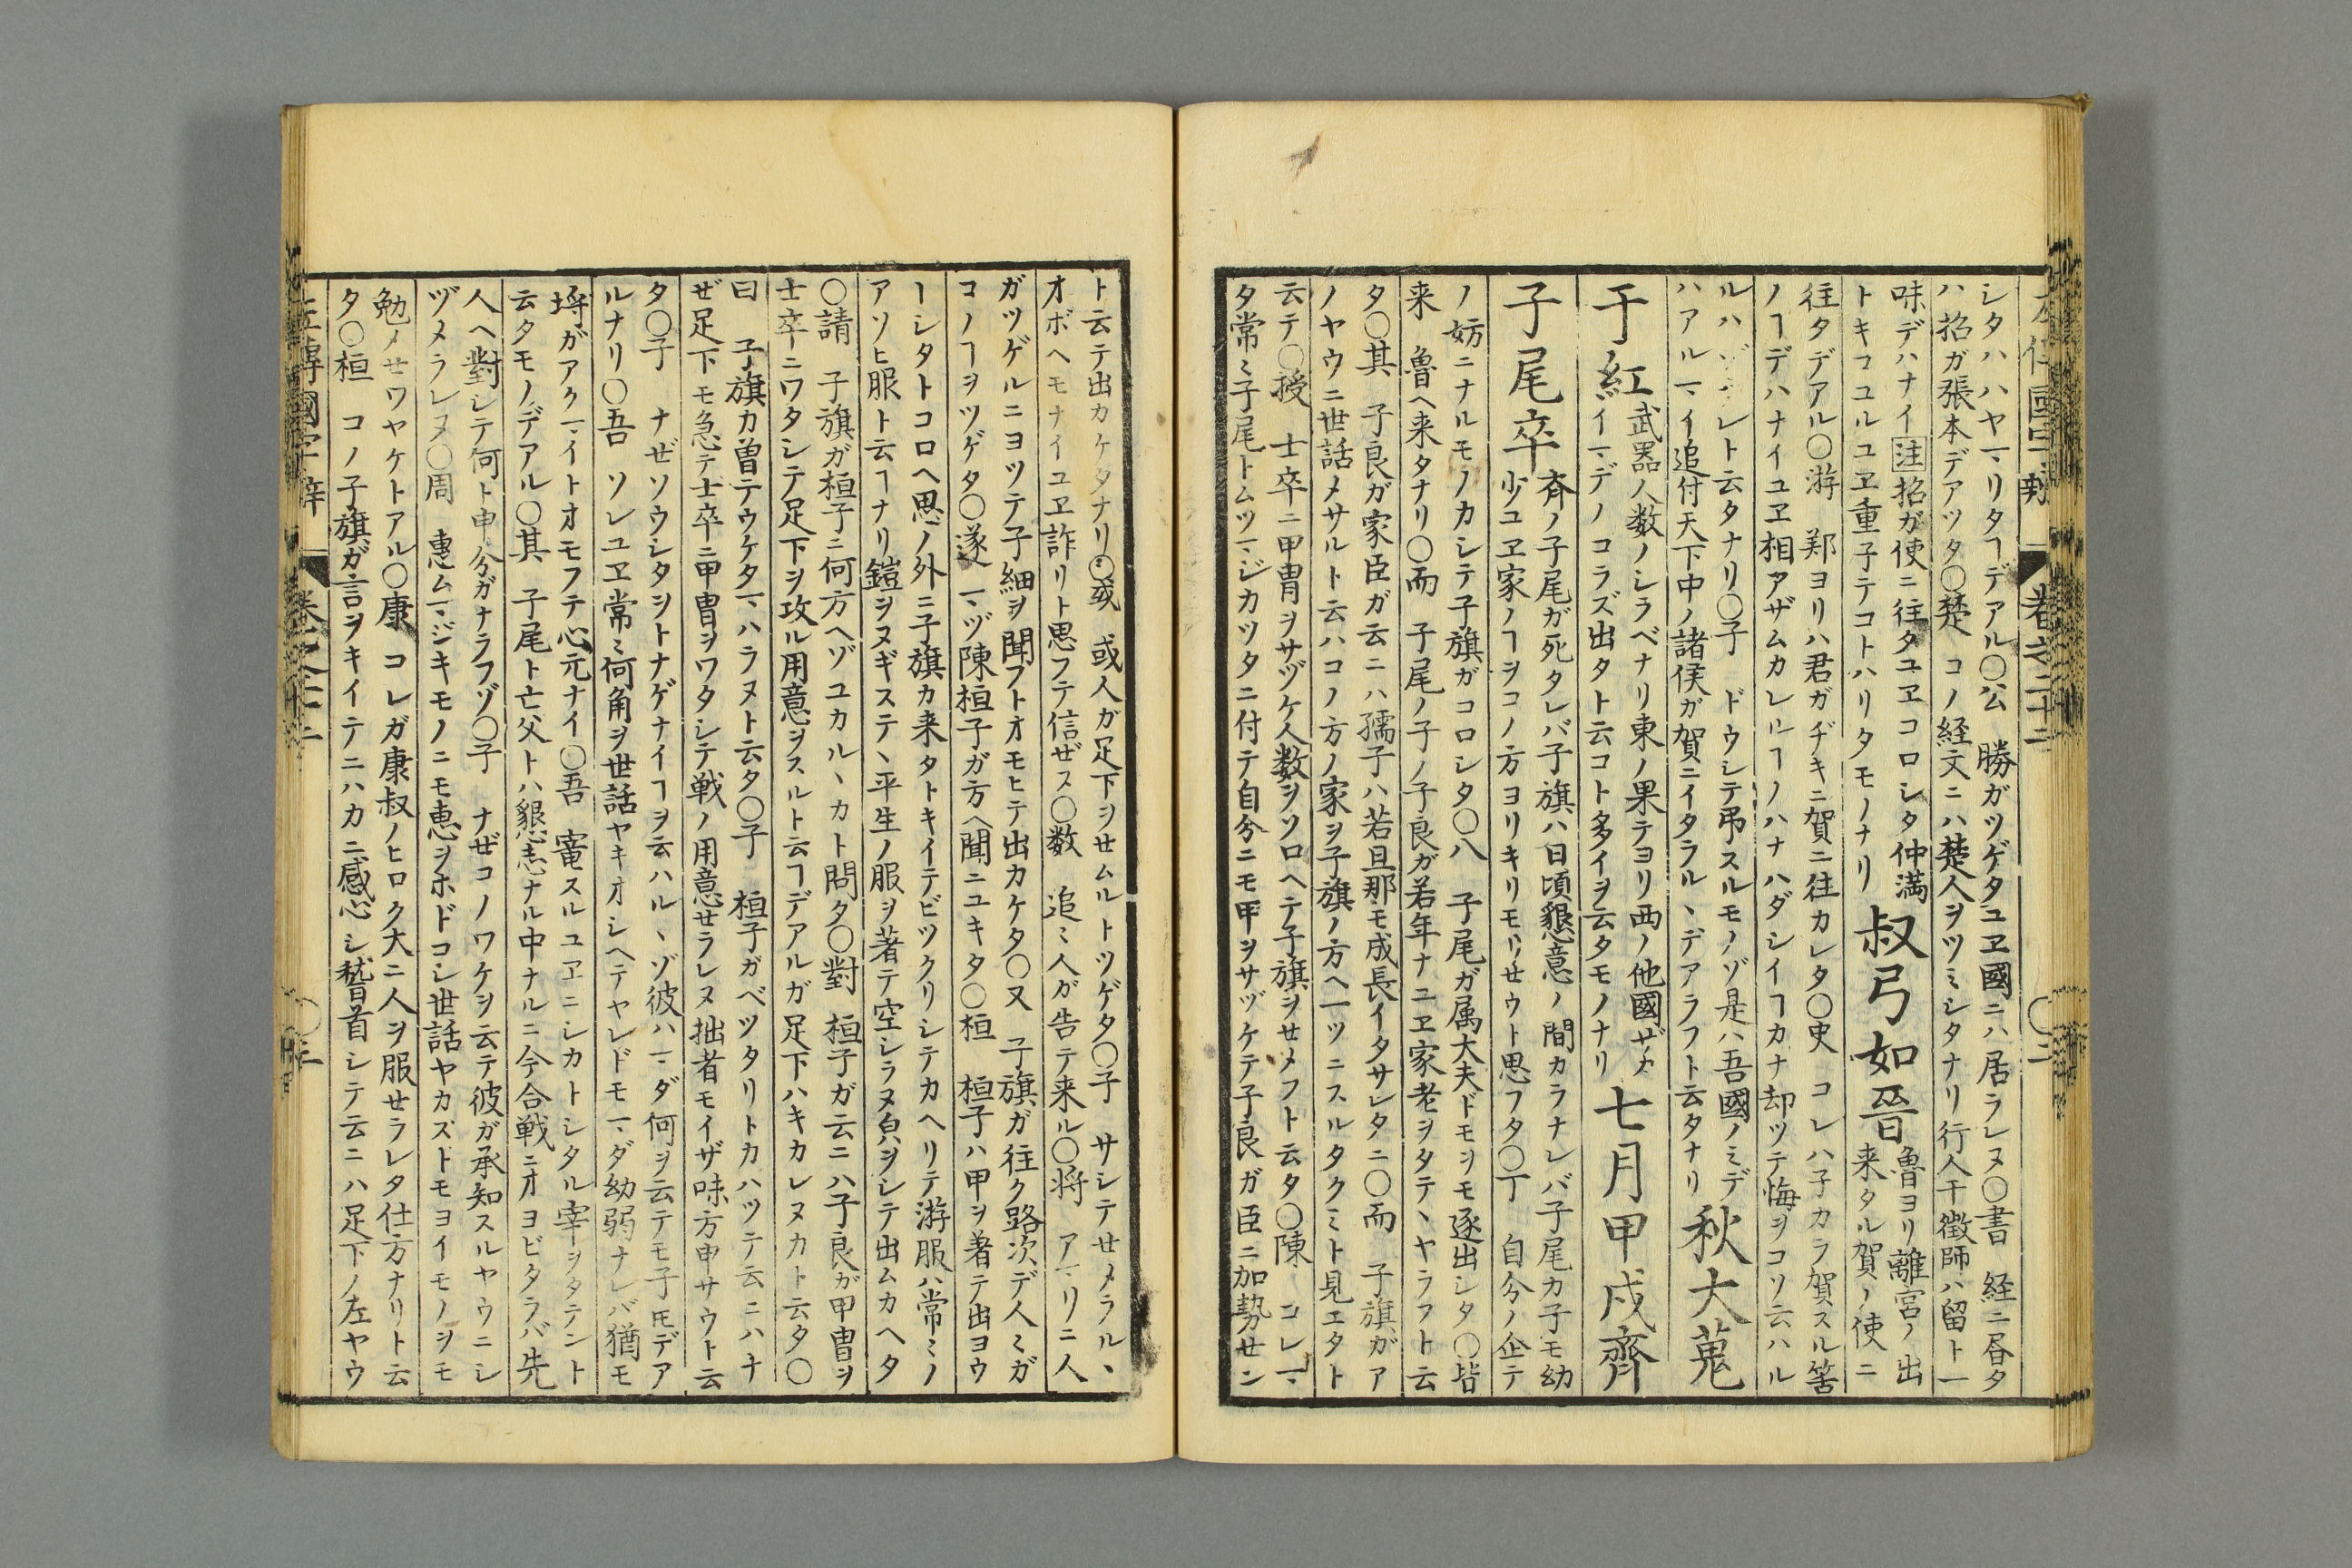 シタハハヤマリタヿデアル○公　勝ガツゲタユヱ國ニハ居ラレヌ○書　経ニ昏タ
ハ招ガ張本デアツタ○楚　コノ経文ニハ楚人ヲツミシタナリ行人干徴師ハ留ト一
味デハナイ注招ガ使ニ往タユヱコロシタ仲満
トキコユルユヱ重子テコトハリタモノナリ
叔弓如晉
魯ヨリ離宮ノ出
来タル賀ノ使ニ
往タデアル○游　鄭ヨリハ君ガヂキニ賀ニ往カレタ○史　コレハ子カラ賀スル筈
ノヿデハナイユヱ相アザムカレルヿノハナハダシイヿカナ却ツテ悔ヲコソ云ハル
ルハヅ　レト云タナリ○子　ドウシテ弔スルモノゾ是ハ吾國ノミデ
ハアルマイ追付天下中ノ諸侯ガ賀ニイタラルヽデアラフト云タナリ
秋大蒐
于紅
武器人数ノシラベナリ東ノ果テヨリ西ノ他國ザカ
イマデノコラズ出タト云コト多イヲ云タモノナリ
七月甲戍齊
子尾卒
斉ノ子尾ガ死タレバ子旗ハ日頃懇意ノ間カラナレバ子尾カ子モ幼
少ユヱ家ノヿヲコノ方ヨリキリモリセウト思フタ○丁　自分ノ企テ
ノ妨ニナルモノカシテ子旗ガコロシタ○八　子尾ガ属大夫ドモヲモ逐出シタ○皆
来　魯ヘ来タナリ○而　子尾ノ子ノ子良ガ若年ナユヱ家老ヲタテヽヤラフト云
タ○其　子良ガ家臣ガ云ニハ孺子ハ若旦那モ成長イタサレタニ○而　子旗ガア
ノヤウニ世話メサルト云ハコノ方ノ家ヲ子旗ノ方ヘ一ツニスルタクミト見エタト
云テ○授　士卒ニ甲冑ヲサヅケ人数ヲソロヘテ子旗ヲセメフト云タ○陳　コレマ
タ常ミ子尾トムツマジカツタニ付テ自分ニモ甲ヲサヅケテ子良ガ臣ニ加勢セン
ト云テ出カケタナリ○或　或人ガ足下ヲセムルトツゲタ○子　サシテセメラルヽ
オボヘモナイユヱ詐リト思フテ信ゼス○数　追ミ人ガ告テ来ル○将　アマリニ人
ガツゲルニヨツテ子細ヲ聞フトオモヒテ出カケタ○又　子旗ガ往ク路次デ人ミガ
コノヿヲツゲタ○遂　マヅ陳桓子ガ方ヘ聞ニユキタ○桓　桓子ハ甲ヲ著テ出ヨウ
ーシタトコロヘ思ノ外ニ子旗カ来タトキイテビツクリシテカヘリテ游服ハ常ミノ
アソヒ服ト云ヿナリ鎧ヲヌギステヽ平生ノ服ヲ著テ空シラヌ㒵ヲシテ出ムカヘタ
○請　子旗ガ桓子ニ何方ヘゾユカルヽカト問タ○對　桓子ガ云ニハ子良ガ甲冑ヲ
士卒ニワタシテ足下ヲ攻ル用意ヲスルト云ヿデアルガ足下ハキカレヌカト云タ○
曰　子旗カ曽テウケタマハラヌト云タ○子　桓子ガベツタリトカハツテ云ニハナ
ゼ足下モ急テ士卒ニ甲冑ヲワタシテ戦ノ用意セラレヌ拙者モイザ味方申サウト云
タ○子　ナゼソウシタヲトナゲナイヿヲ云ハルヽゾ彼ハマダ何ヲ云テモ子𪜈デア
ルナリ○吾　ソレユヱ常ミ何角ヲ世話ヤキオシヘテヤレドモマダ幼弱ナレバ猶モ
埒ガアクマイトオモフテ心元ナイ○吾　寵スルユヱニシカトシタル宰ヲタテント
云タモノデアル○其　子尾ト亡父トハ懇志ナル中ナルニ今合戦ニオヨビタラバ先
人ヘ對シテ何ト申分ガナラフゾ○子　ナゼコノワケヲ云テ彼ガ承知スルヤウニシ
ヅメラレヌ○周　惠ムマジキモノニモ恵ヲホドコシ世話ヤカズトモヨイモノヲモ
勉メセワヤケトアル○康　コレガ康叔ノヒロク大ニ人ヲ服セラレタ仕方ナリト云
タ○桓　コノ子旗ガ言ヲキイテニハカニ感心シ稽首シテ云ニハ足下ノ左ヤウ
左傳國字辯　卷之二十二　○三